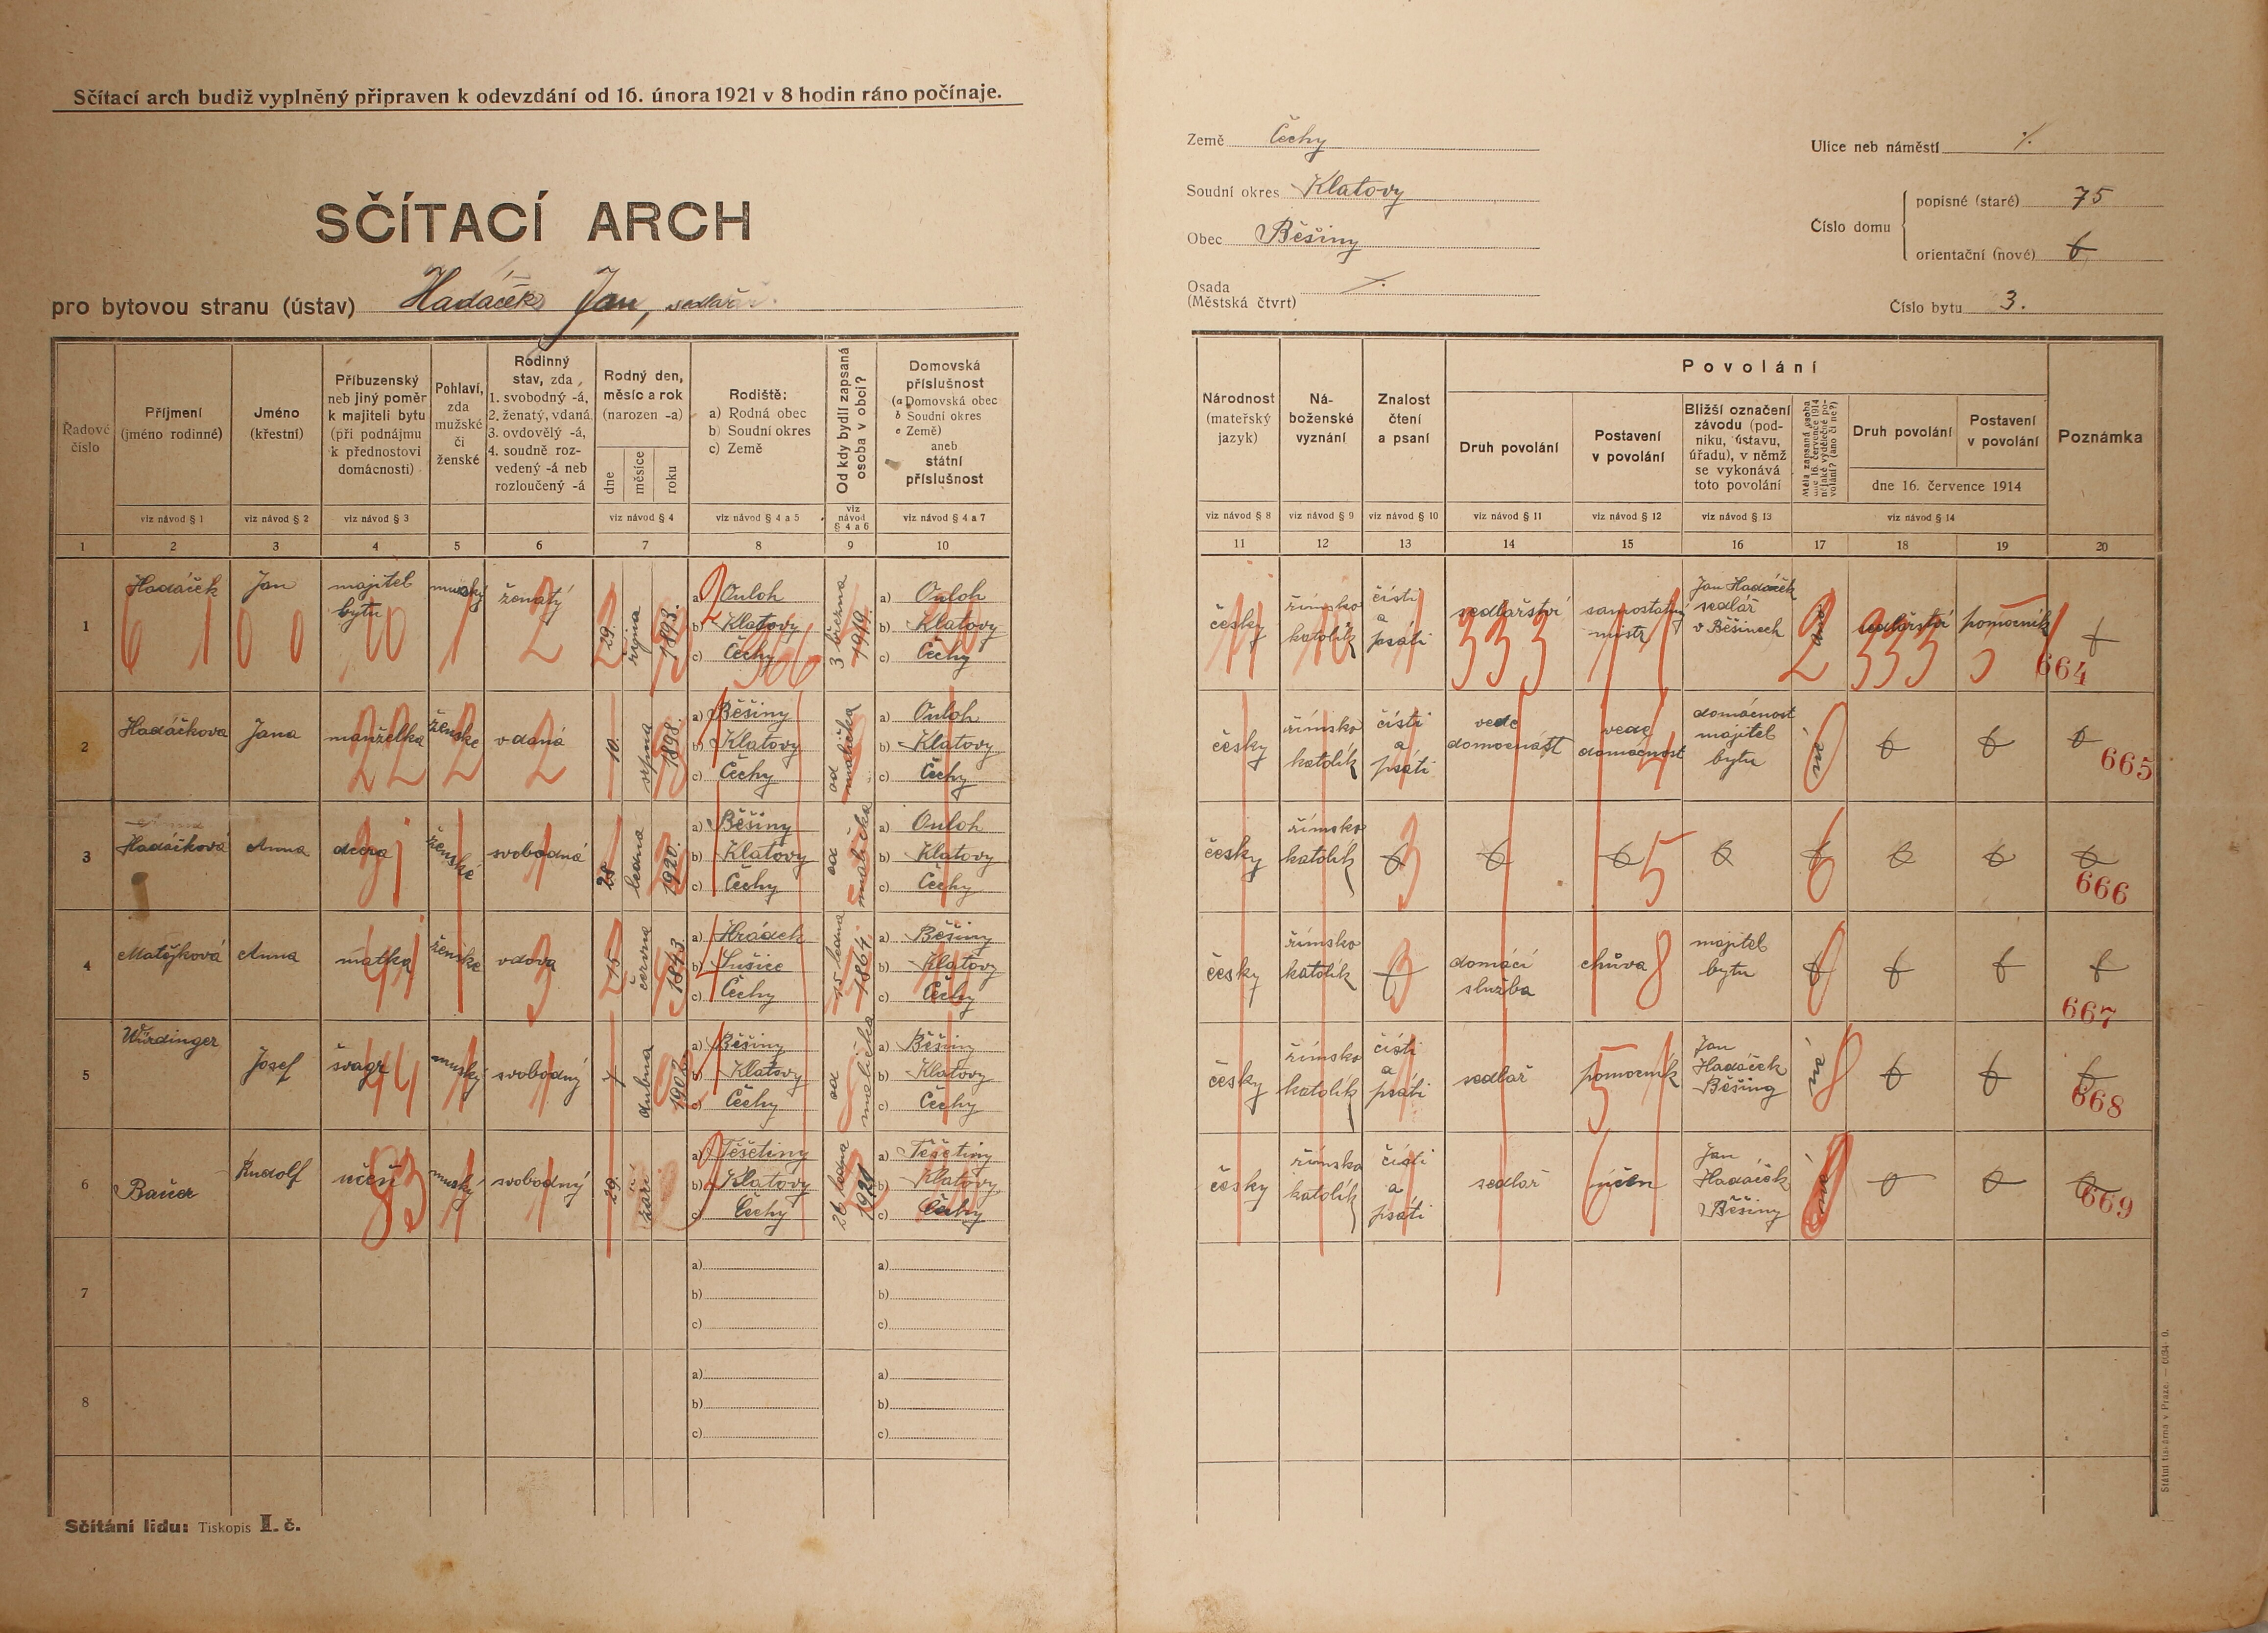 Sčítací arch budiž vyplněný připraven k odevzdání od 16. února 1921 v 8 hodin ráno počínaje.
SČÍTACÍ ARCH
pro bytovou stranu (ústav) Hadáček Jan, sedlář
Země Čechy
Soudní okres Klatovy
Obec Běšiny
Osada
(Městská čtvrt)
Ulice neb náměstí
Číslo domu
popisné (staré) 75
orientační (nové)
Číslo bytu 3.
Řadové číslo
Příjmení (jméno rodinné)
Jméno (křestní)
Příbuzenský neb jiný poměr k majiteli bytu (při podnájmu k přednostovi domácnosti)
Pohlaví, zda mužské či ženské
Rodinný stav, zda 1. svobodný -á, 2. ženatý, vdaná 3. ovdovělý -á, 4. soudně rozvedený -á neb rozloučený -á
Rodný den, měsíc a rok (narozen -a)
dne měsíce roku
Rodiště: a) Rodná obec b) Soudní okres c) Země
Od kdy bydlí zapsaná osoba v obci?
Domovská příslušnost (a Domovská obec b Soudní okres c Země) aneb státní příslušnost
viz návod § 1 viz návod § 2 viz návod § 3 viz návod § 4 viz návod § 4 a 5 viz návod § 4 a 6 viz návod § 4 a 7
1 2 3 4 5 6 7 8 9 10
Národnost (mateřský jazyk)
Náboženské vyznání
Znalost čtení a psaní
Povolání
Druh povolání
Postavení v povolání
Bližší označení závodu (podniku, ústavu, úřadu), v němž se vykonává toto povolání
Měla zapsaná osoba dne 16. července 1914 nějaké výdělečné povolání? (ano či ne?)
Druh povolání
Postavení v povolání
dne 16. července 1914
Poznámka
viz návod § 8 viz návod § 9 viz návod § 10 viz návod § 11 viz návod § 12 viz návod § 13 viz návod § 14
11 12 13 14 15 16 17 18 19 20
1 Hadáček Jan majitel bytu mužský ženatý 29. října 1893. a) Ouloh b) Klatovy c) Čechy 3 března 1919. a) Ouloh b) Klatovy c) Čechy
česky římsko katolík čísti a psáti sedlářství samostatný mistr Jan Hadáček sedlář v Běšinech ano sedlářství pomocník 664
2 Hadáčkova Jana manželka ženské vdaná 10. srpna 1898. a) Běšiny b) Klatovy c) Čechy od malička a) Ouloh b) Klatovy c) Čechy
česky římsko katolík čísti a psáti vede domácnost vede domácnost domácnost majitel bytu ne 665
3 Hadáčková Anna dcera ženské svobodná 28 ledna 1920. a) Běšiny b) Klatovy c) Čechy od malička a) Ouloh b) Klatovy c) Čechy
česky římsko katolík 666
4 Matějková Anna matka ženské vdova 25 června 1843. a) Hrádek b) Sušice c) Čechy 15 ledna 1864. a) Běšiny b) Klatovy c) Čechy
česky římsko katolík domácí služba chůva majitel bytu 667
5 Würdinger Josef švagr mužský svobodný 7 dubna a) Běšiny b) Klatovy c) Čechy od malička a) Běšiny b) Klatovy c) Čechy
česky římsko katolík čísti a psáti sedlář pomocník Jan Hadáček Běšiny ne 668
6 Bauer Rudolf učeň mužský svobodný 29. září a) Těšetiny b) Klatovy c) Čechy 26 ledna 1921 a) Těšetiny b) Klatovy c) Čechy
česky římsko katolík čísti a psáti sedlář učen Jan Hadáček Běšiny ne 669
7 a) b) c) a) b) c)
8 a) b) c) a) b) c)
Sčítání lidu: Tiskopis I. č.
Státní tiskárna v Praze.